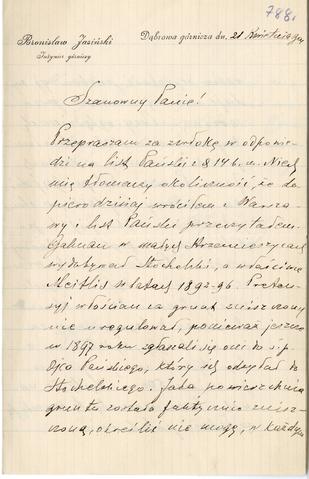 788.
Bronisław Jasiński
Inżynier górniczy
Dąbrowa górnicza dn. 21 Kwietnia
Szanowny Panie!
Przepraszam za zwłokę w odpowie-
dzi na list Pański z 8 i 16 b.m. Niech
mię tłomaczy okoliczność, że do
piero dzisiaj wróciłem z Warsza-
wy i list Pański przeczytałem.
Galman w małych Strzemieszycach
wydobywał Stochelski, a właściwie
Meitlis w latach 1892-96. Preten-
syj włościan za grunt zniszczony
nie uregulował, ponieważ jeszcze
w 1897 roku zgłaszali się oni do ś.p.
Ojca Pańskiego, który ich odsyłał do
Stochelskiego. Jaka powierzchnia
gruntu została faktycznie znisz-
czona, określić nie mogę, w każdym